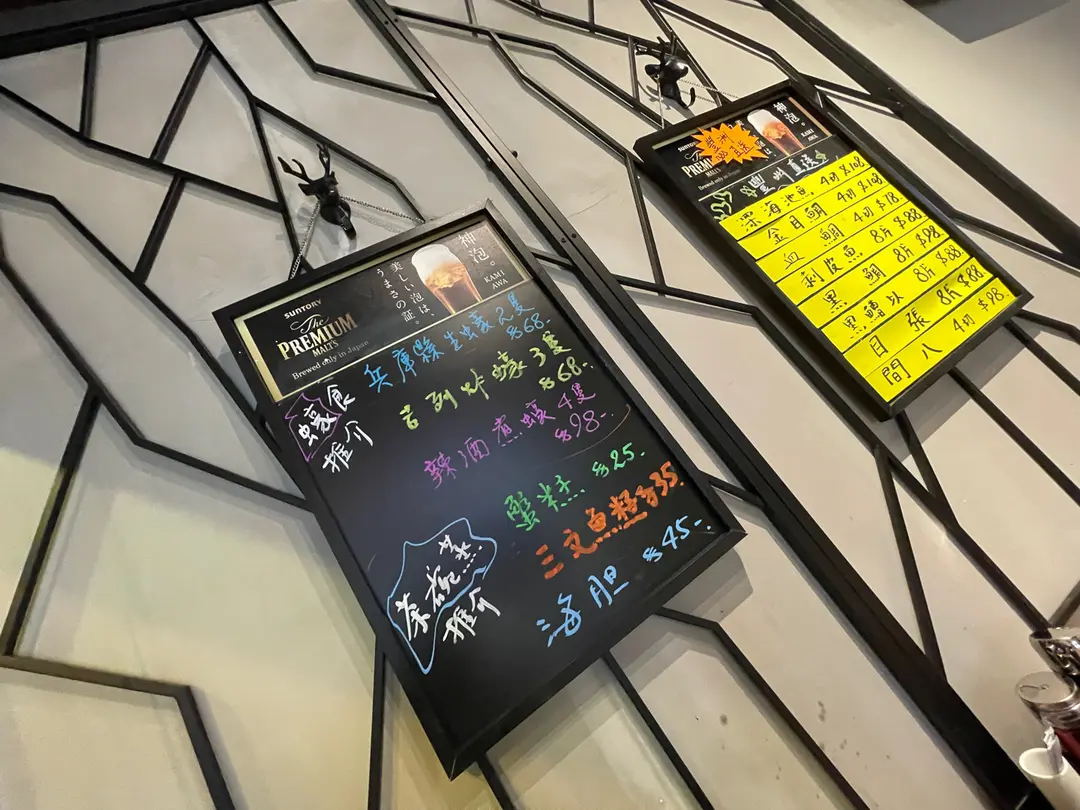 SUNTORY
The
PREMIUM
MALT'S
Brewed only in Japan
美しい泡は、
うまさの証。
神泡。
KAMI
AWA
蠔食
推介
兵庫縣生蠔2隻
$68.
吉列炸蠔3隻
$68.
辣酒煮蠔4隻
$98.
茶碗蒸
推介
蟹粉 $25.
三文魚籽$35.
海胆 $45.
SUNTORY
The
PREM
MALT'S
Brewed only in Japan
神泡。
KAMI
AWA
豐洲
直送
豐州直送
深海池魚 4切 $108
金目鯛 4切 $108
血鯛 4切 $18
剥皮魚 8片 $88
黑鯛 8片 $98.
黑鱄以 8片 $88
目張 8片 $88.
間八 4切 $98.